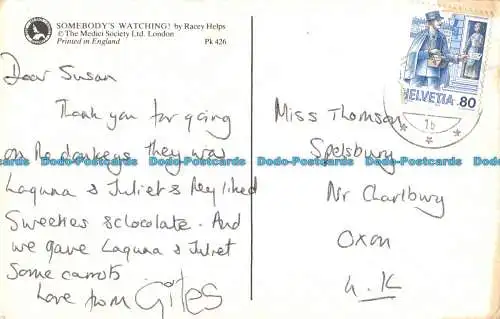 SOMEBODY'S WATCHING! by Racey Helps
© The Medici Society Ltd. London
Printed in England
Pk 426
Dear Susan
Thank you for going
on the donkeys they was
Laguna & Juliet & they liked
Sweeties & clocolate. And
we gave Laguna & Juliet
Some carrots
Love from Giles
HELVETIA 80
16
Miss Thomson
Spelsbury
Nr Charlbury
Oxon
U.K
Dodo-Postcards Dodo-Postcards Dodo-Postcards Dodo-Postcards Dodo-Postcards